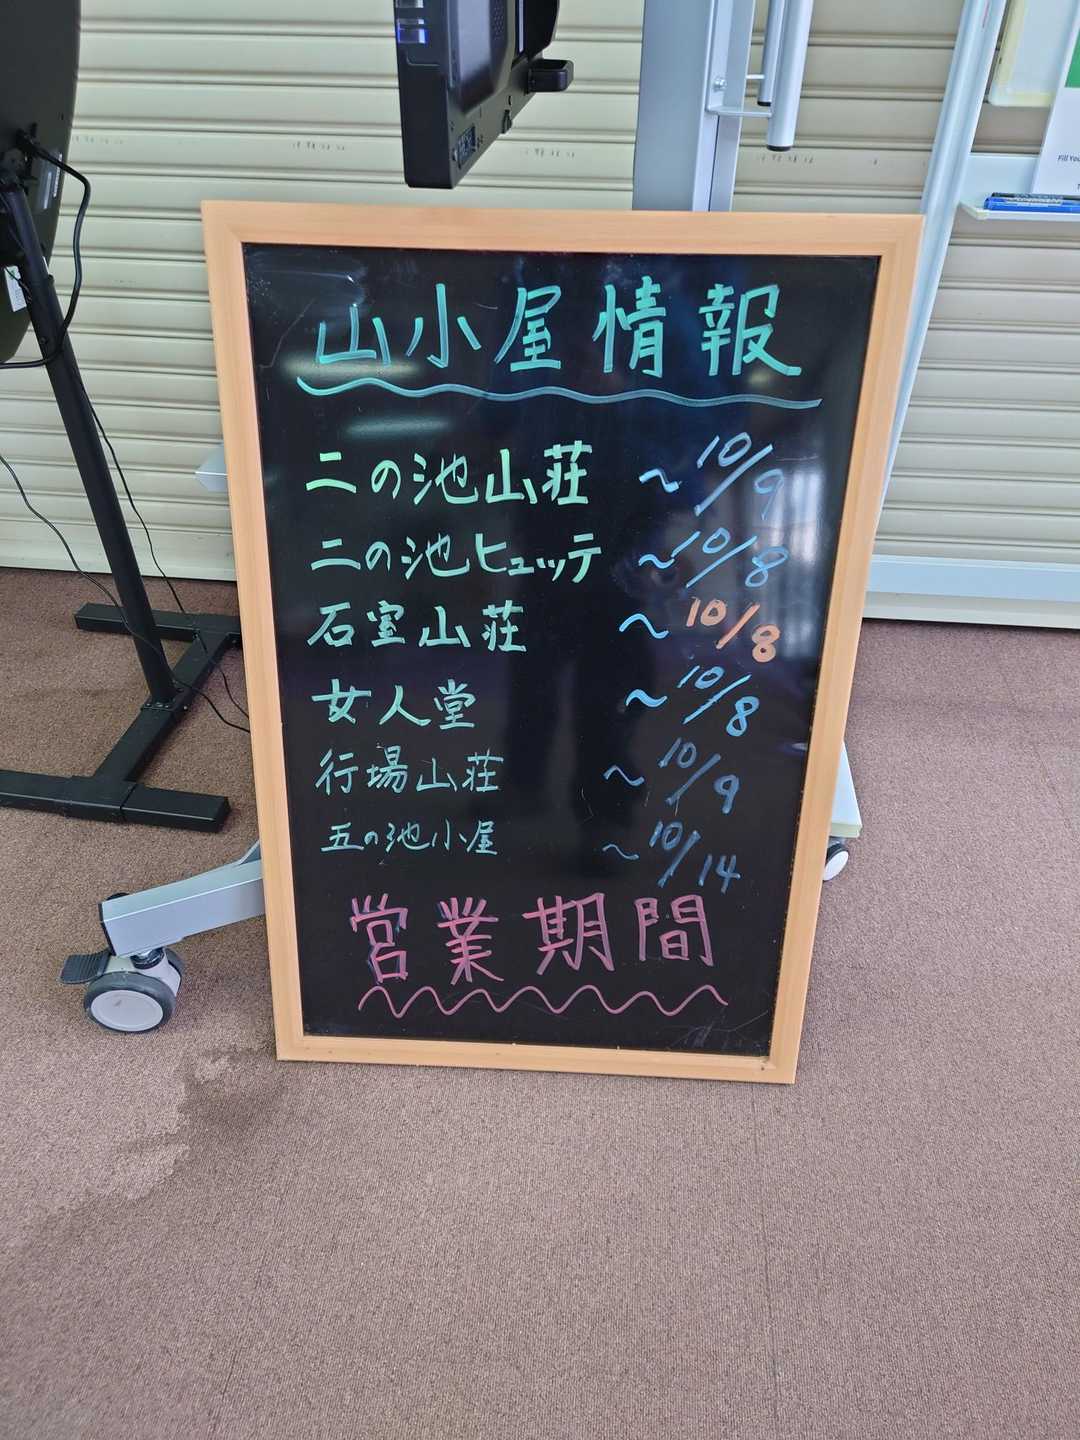 山小屋情報
二の池山荘 ～10/9
二の池ヒュッテ ～10/8
石室山荘 ～10/8
女人堂 ～10/8
行場山荘 ～10/9
五の池小屋 ～10/14
営業期間
Fill You